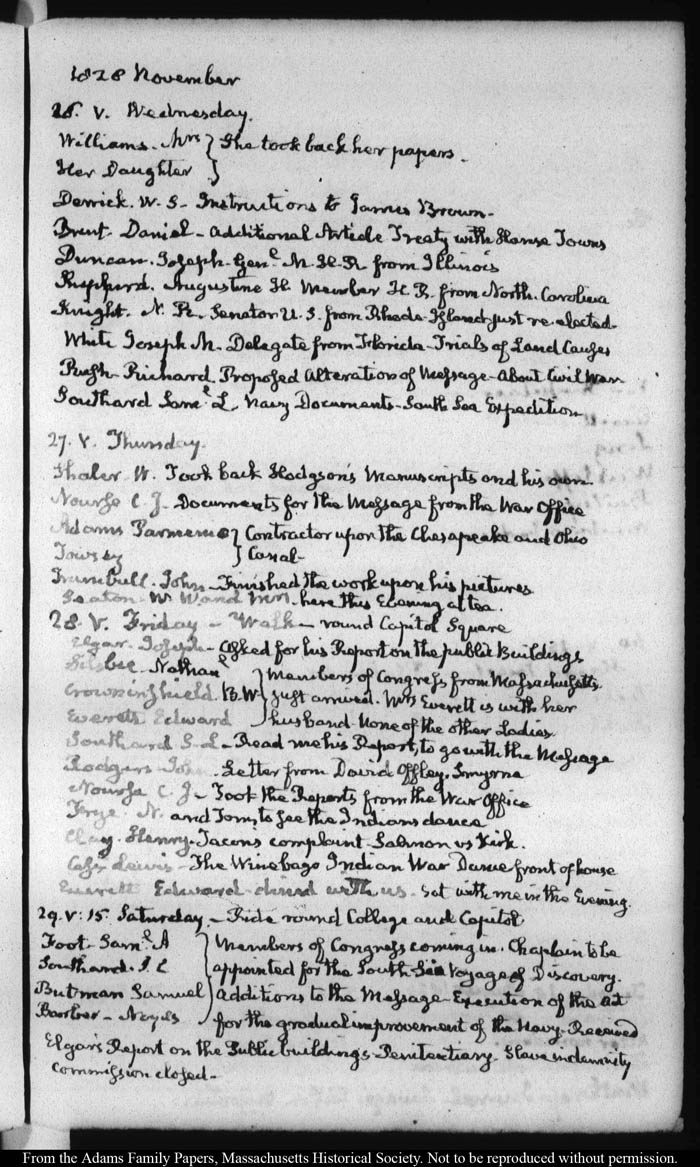 1828 November
26. V. Wednesday.
Williams. Mrs } She took back her papers.
Her Daughter }
Derrick. W. S. Instructions to James Brown.
Brent Daniel - additional Article Treaty with Hanse Towns
Duncan. Joseph. Genl. M. H. R. from Illinois
Augustine H. Member H. R. from North. Carolina
Knight. N. R. Senator U. S. from Rhode-Island just re-elected.
White Joseph M. Delegate from Florida - Trials of Land Causes
Rush Richard. Proposed alteration of Message - About Civil War
Southard Saml. L. Navy Documents - South Sea Expedition
27. V. Thursday.
Thaler. W. Took back Hodgson's Manuscripts and his own.
Nourse C. J. Documents for the Message from the War Office
Adams Parmenio } Contractor upon the Chesapeake and Ohio
Towsey } Canal.
Trumbull. John - Finished the work upon his pictures
Seaton - W. W and Mrs. here this Evening at tea.
28. V. Friday - Walk - round Capitol Square
Elgar. Joseph - asked for his Report on the public Buildings
Silsbee. Nathanl. } Members of Congress from Massachusetts
Crowninshield. B. W. } just arrived. Mrs Everett is with her
Everett Edward } husband. None of the other Ladies.
Southard S. L - Read me his Report, to go with the Message
Rodgers John. Letter from David Offley, Smyrna
Nourse C. J. - Took the Reports from the War Office
Frye. N. and Tom, to see the Indians dance
Clay. Henry. Tacons complaint Salmon vs Kirk.
Cass Lewis - The Winebago Indian War Dance front of house
Everett Edward dined with us. Sat with me in the Evening.
29. V: 15. Saturday - Ride round College and Capitol
Foot - Saml. A } Members of Congress coming in. Chaplain to be
Southard. S. L } appointed for the South-Sea Voyage of Discovery.
Butman Samuel } additions to the Message - Execution of the act
Barber - Noyes } for the gradual improvement of the Navy. Received
Elgar's Report on the Public buildings. Penitentiary. Slave indemnity
Commission closed.
From the Adams Family Papers, Massachusetts Historical Society. Not to be reproduced without permission.